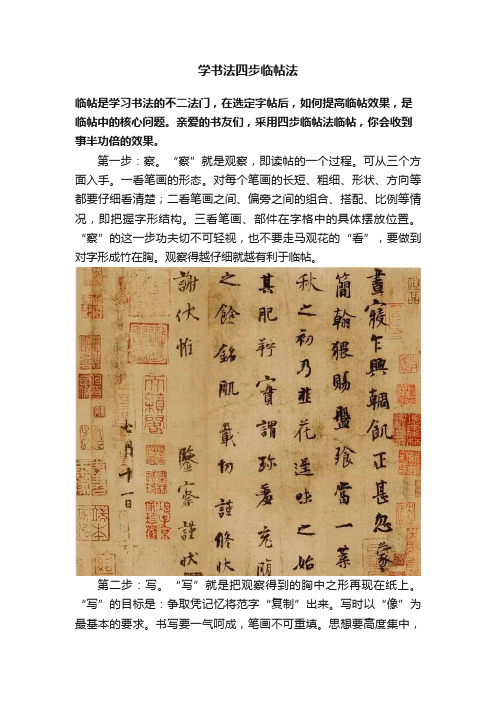 学书法四步临帖法
临帖是学习书法的不二法门，在选定字帖后，如何提高临帖效果，是
临帖中的核心问题。亲爱的书友们，采用四步临帖法临帖，你会收到
事半功倍的效果。
第一步：察。“察”就是观察，即读帖的一个过程。可从三个方
面入手。一看笔画的形态。对每个笔画的长短、粗细、形状、方向等
都要仔细看清楚；二看笔画之间、偏旁之间的组合、搭配、比例等情
况，即把握字形结构。三看笔画、部件在字格中的具体摆放位置。
“察”的这一步功夫切不可轻视，也不要走马观花的“看”，要做到
对字形成竹在胸。观察得越仔细就越有利于临帖。
晝寢乍興輖飢正甚忽蒙
簡翰猥賜盤飧當一葉
秋之初乃韭花逞味之始
其肥羜實謂珍羞充腹
之餘銘肌載切謹修狀
謝伏惟 鑒察謹狀
七月十一日
第二步：写。“写”就是把观察得到的胸中之形再现在纸上。
“写”的目标是：争取凭记忆将范字“复制”出来。写时以“像”为
最基本的要求。书写要一气呵成，笔画不可重填。思想要高度集中，